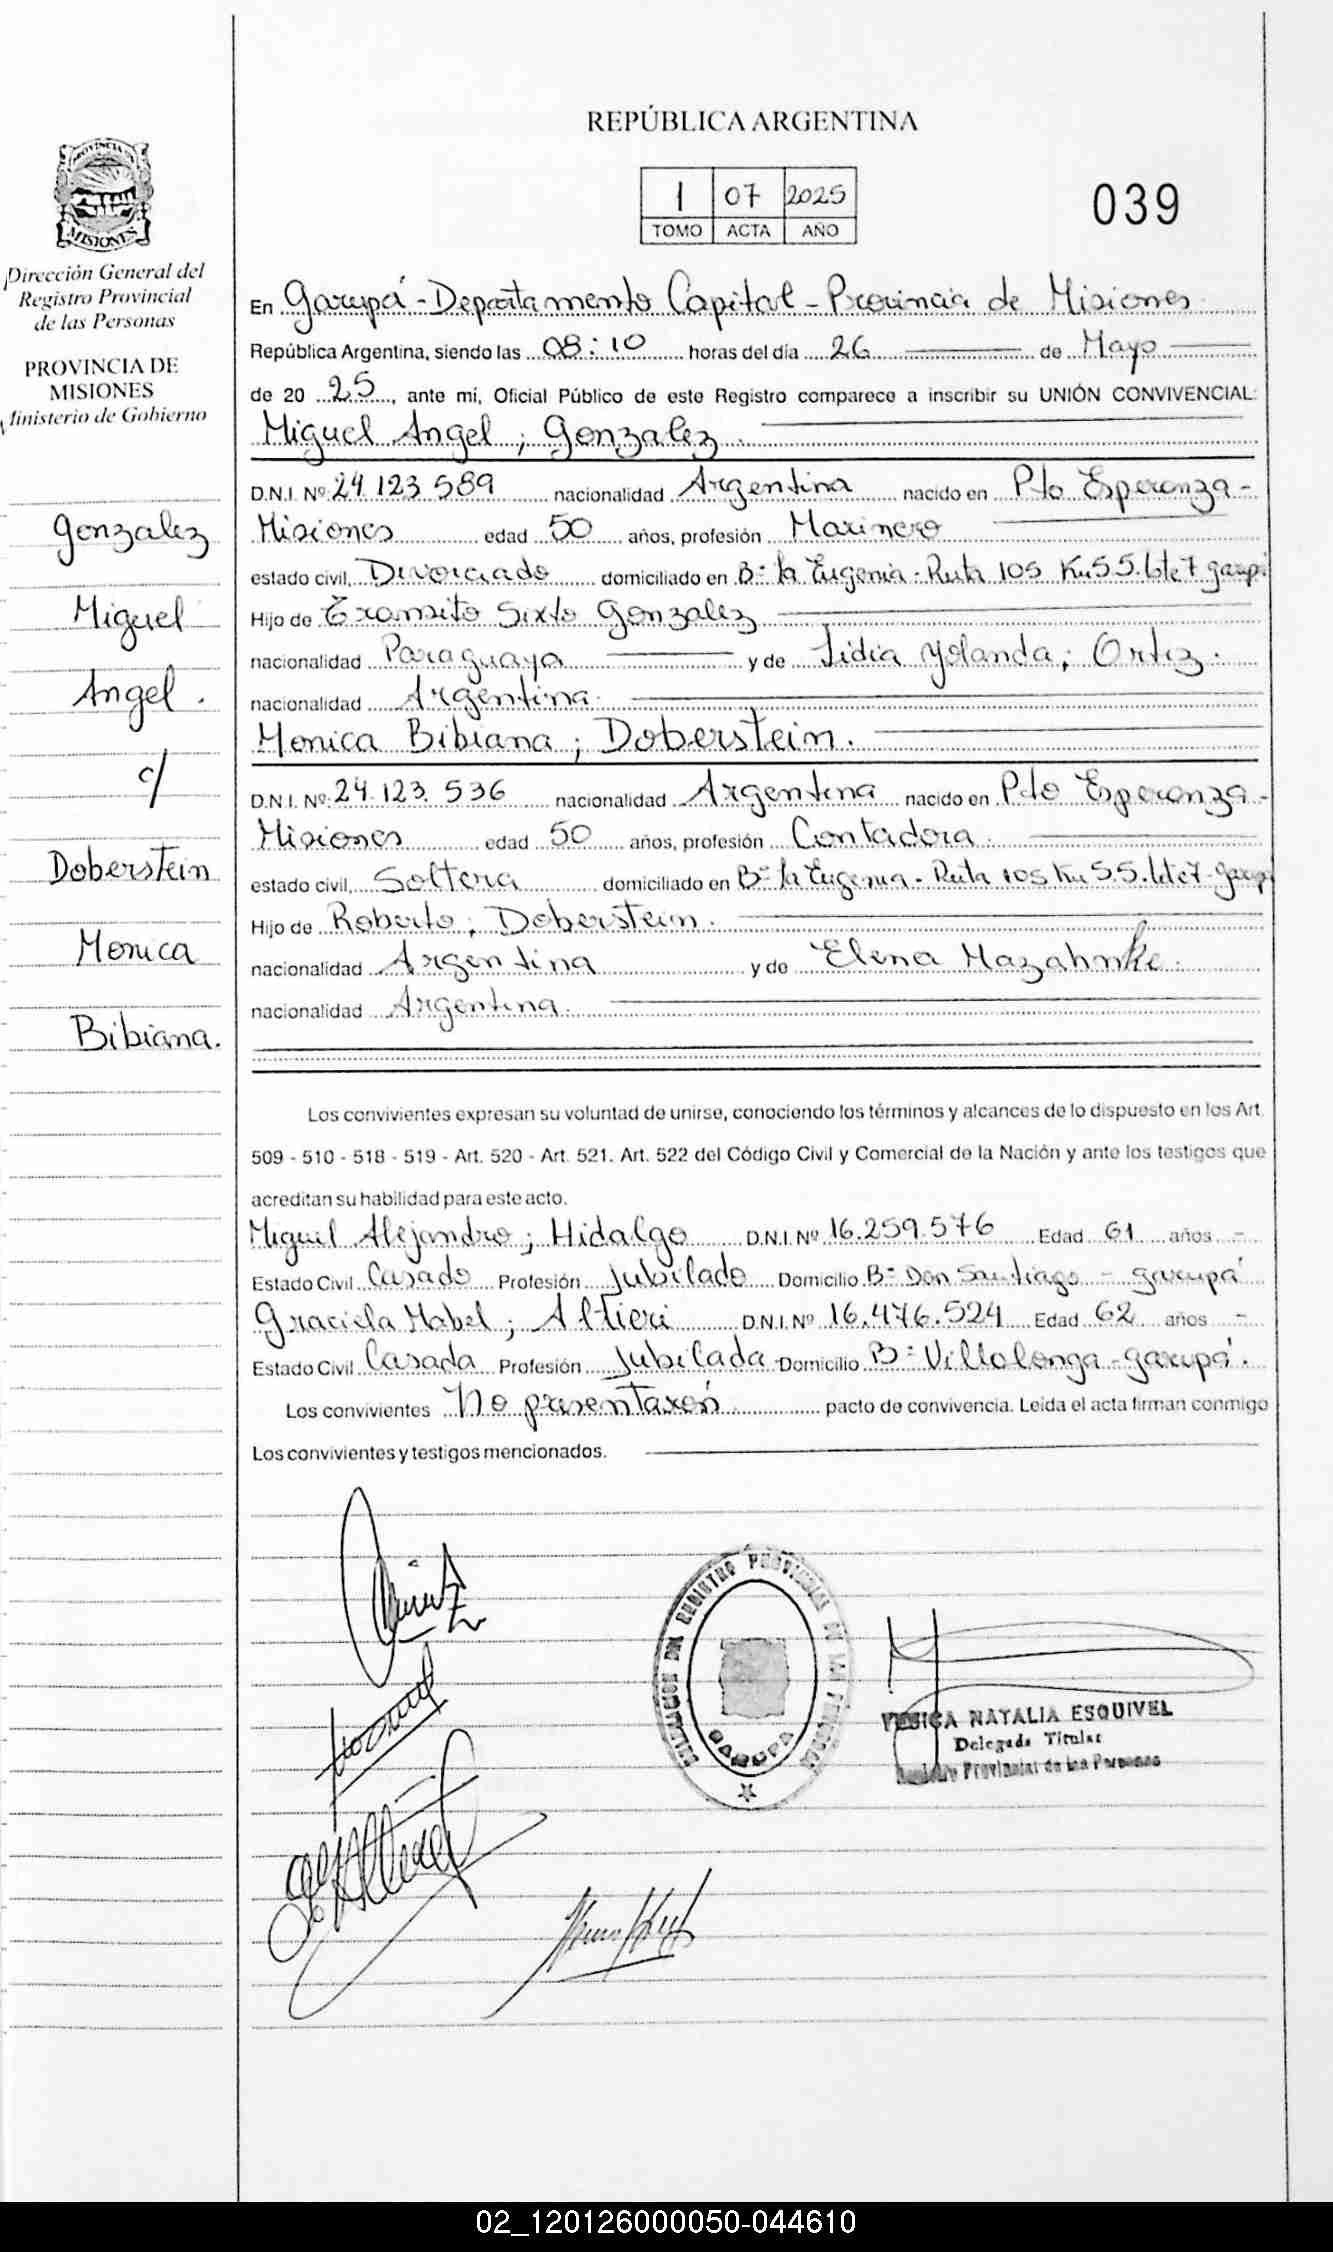 REPÚBLICA ARGENTINA
1 07 2025
TOMO ACTA AÑO
039
PROVINCIA DE
MISIONES
Dirección General del
Registro Provincial
de las Personas
PROVINCIA DE
MISIONES
Ministerio de Gobierno
Gonzalez
Miguel
Angel.
c/
Doberstein
Monica
Bibiana.
En Garupá - Departamento Capital - Provincia de Misiones
República Argentina, siendo las 08:10 horas del día 26 de Mayo
de 20 25, ante mí, Oficial Público de este Registro comparece a inscribir su UNIÓN CONVIVENCIAL:
Miguel Angel ; Gonzalez.
D.N.I. Nº 24.123.589 nacionalidad Argentina nacido en Pto Esperanza -
Misiones edad 50 años, profesión Marinero
estado civil, Divorciado domiciliado en Bº la Eugenia - Ruta 105 Km 5.5. lte 7 garup
Hijo de Transito Sixto Gonzalez
nacionalidad Paraguaya y de Lidia Yolanda; Ortiz.
nacionalidad Argentina.
Monica Bibiana ; Doberstein.
D.N.I. Nº 24.123.536 nacionalidad Argentina nacido en Pto Esperanza -
Misiones edad 50 años, profesión Contadora.
estado civil, Soltera domiciliado en Bº la Eugenia - Ruta 105 Km 5.5. lte 7 - Garup
Hijo de Roberto ; Doberstein.
nacionalidad Argentina y de Elena Mazahnke.
nacionalidad Argentina.
Los convivientes expresan su voluntad de unirse, conociendo los términos y alcances de lo dispuesto en los Art.
509 - 510 - 518 - 519 - Art. 520 - Art. 521. Art. 522 del Código Civil y Comercial de la Nación y ante los testigos que
acreditan su habilidad para este acto.
Miguel Alejandro ; Hidalgo D.N.I. Nº 16.259.576 Edad 61 años -
Estado Civil Casado Profesión Jubilado Domicilio Bº Don Santiago - garupá
Graciela Mabel ; Altieri D.N.I. Nº 16.476.524 Edad 62 años -
Estado Civil Casada Profesión Jubilada Domicilio Bº Villalonga - garupá.
Los convivientes No presentaron pacto de convivencia. Leída el acta firman conmigo
Los convivientes y testigos mencionados.
REGISTRO PROVINCIAL DE LAS PERSONAS
GARUPA
YESICA NATALIA ESQUIVEL
Delegada Titular
Registro Provincial de las Personas
02_120126000050-044610